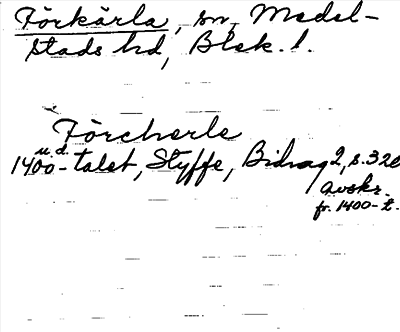 Förkärla, sn, Medel-
stads hd, Blek. l.
Förcherle
u.d.
1400-talet, Styffe, Bidrag 2, s. 32
avskr.
fr. 1400-t.